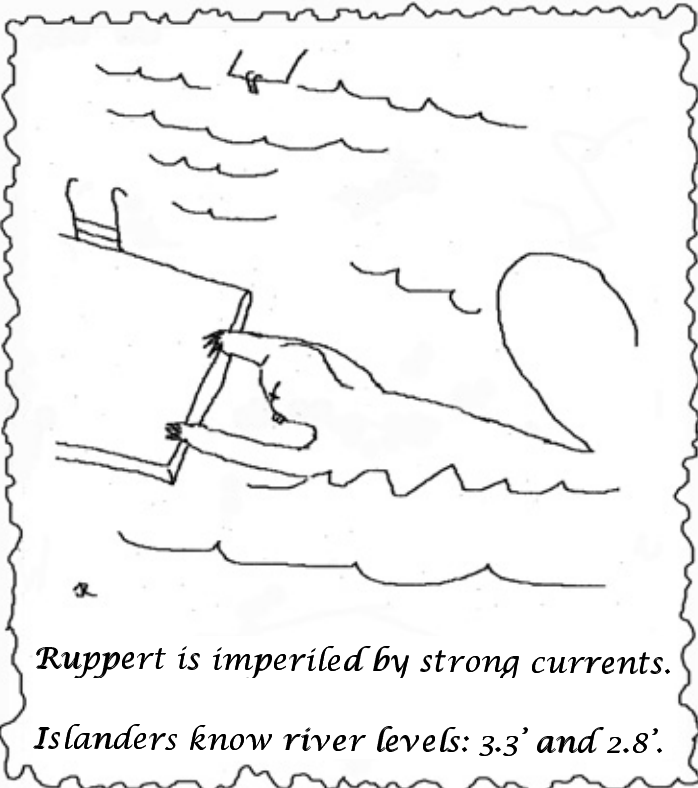 Ruppert is imperiled by strong currents.
Islanders know river levels: 3.3’ and 2.8’.